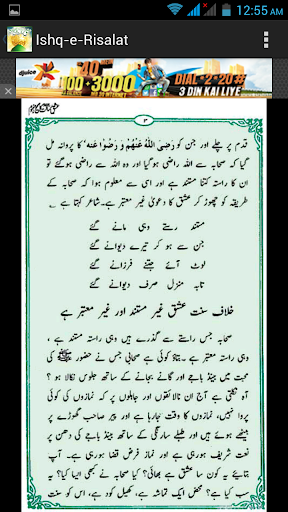 12:55 AM
Ishq-e-Risalat
djuice
40
100+3000
DIAL *2*20#
3 DIN KAI LIYE
۳
قدم پر چلے اور جن کو رَضِیَ اللّٰهُ عَنْهُمْ وَ رَضُوْا عَنه‘ کا پروانہ مل
گیا کہ صحابہ سے اللہ راضی ہوگیا اور وہ اللہ سے راضی ہوگئے تو
ان کا راستہ کتنا مستند ہے اور اسی سے معلوم ہوا کہ صحابہ کے
طریقہ کو چھوڑ کر عشق کا دعویٰ غیر معتبر ہے۔ شاعر کہتا ہے ؎
مستند رستے وہی مانے گئے
جن سے ہو کر تیرے دیوانے گئے
لوٹ آئے جتنے فرزانے گئے
تابہ منزل صرف دیوانے گئے
خلافِ سنت عشق غیر مستند اور غیر معتبر ہے
صحابہ جس راستے سے گذرے ہیں وہی راستہ مستند ہے ،
وہی راستہ معتبر ہے۔ بتاؤ کوئی ہے صحابی جس نے حضور ﷺ کی
محبت میں بینڈ باجے اور گانے بجانے کے ساتھ جلوس نکالا ہو ؟
آہ نکلتی ہے آج ان نالائقوں اور جاہلوں پر کہ نمازوں کی کوئی
پروا نہیں، نمازوں کا وقت جارہا ہے اور پیر صاحب گھوڑے پر
بیٹھے ہوئے ہیں اور طبلے سارنگی کے ساتھ بینڈ باجے کی دھن پر
نعت شریف ہورہی ہے اور نماز فرض قضا ہورہی ہے۔ آپ
بتائیے یہ کون سا عشق ہے بھائی؟ کیا صحابہ نے کبھی ایسا کیا؟ یہ
سب کیا ہے؟ محض ایک تماشہ ہے، کھیل کود ہے، اس کو سنت